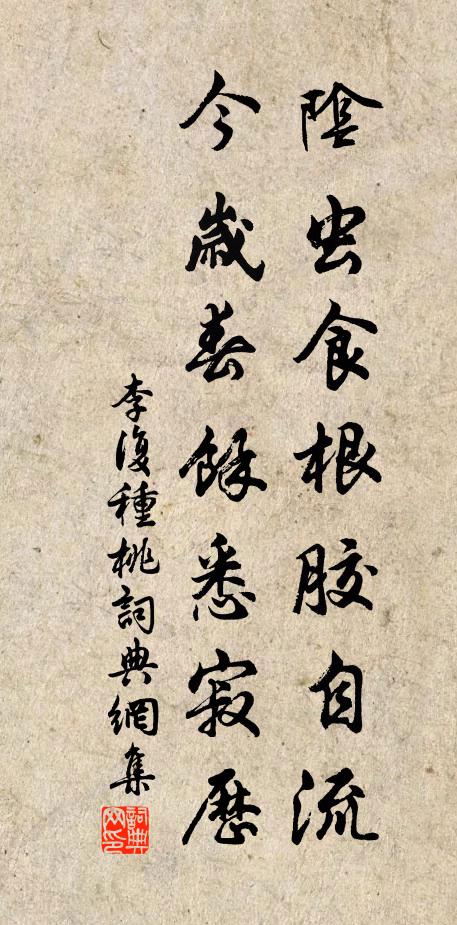 陰虫食根膠自流
今歲春餘悉寂歷
李復種桃詞典網集
詞典网印